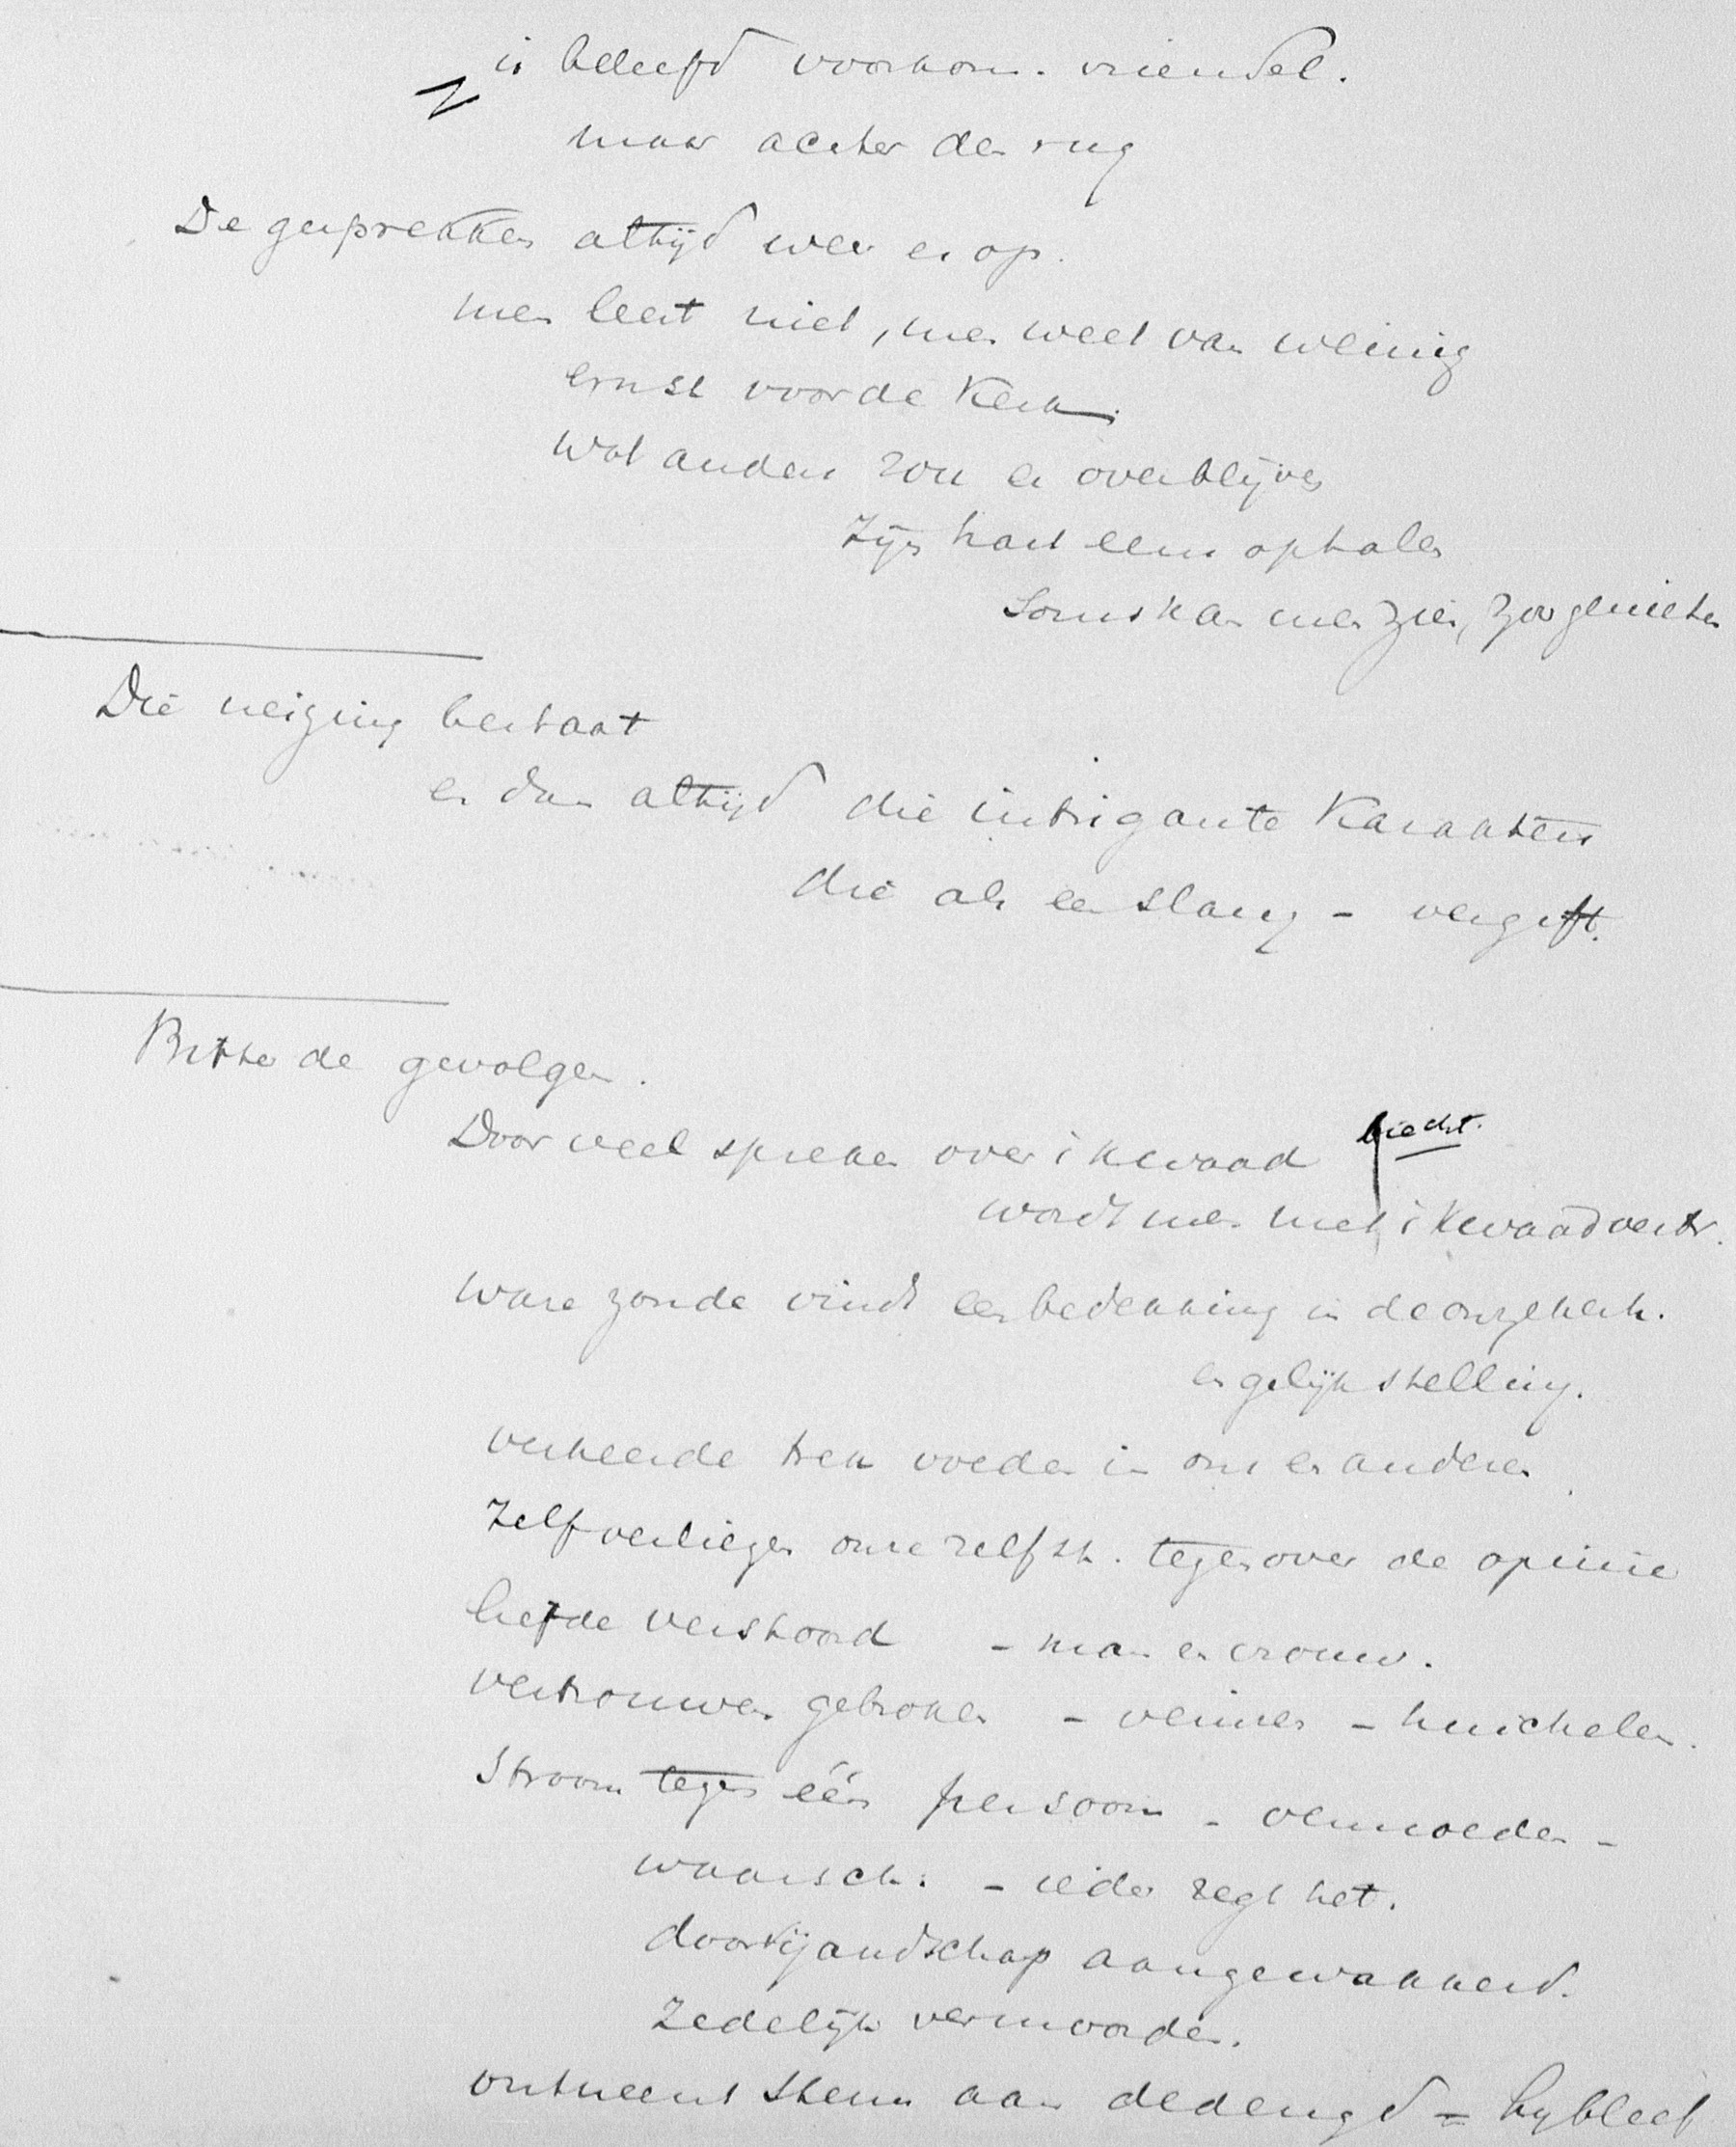 is beleefd voorkom. vriendel.
maar achter den rug
De gesprekken altijd weer er op.
men leest niet, men weet van weinig
ernst voor de Kerk
wat anders zou er overblijven
Zijn hart eens ophalen
Soms kan men zien, zoo genieten
Die neiging bestaat
en dan altijd die intrigante Karakters
die als een slang - vergift.
Bittere de gevolgen.
Door veel spreken over 't kwaad
biecht.
wordt men met 't kwaad vertr.
ware zonde vindt een bedekking in de onzekerh.
en gelijkstelling.
verkeerde trek voeden in ons en anderen
Zelf verliezen onze zelfst. tegenover de opinie
liefde verstoord - man en vrouw.
vertrouwen gebroken - veinzen - huichelen.
Stroom tegen één persoon - vermoeden -
waarsch: - ieder zegt het.
door vijandschap aangewakkerd.
Zedelijk vermoorden.
ontneemt steun aan de deugd = hy bleef